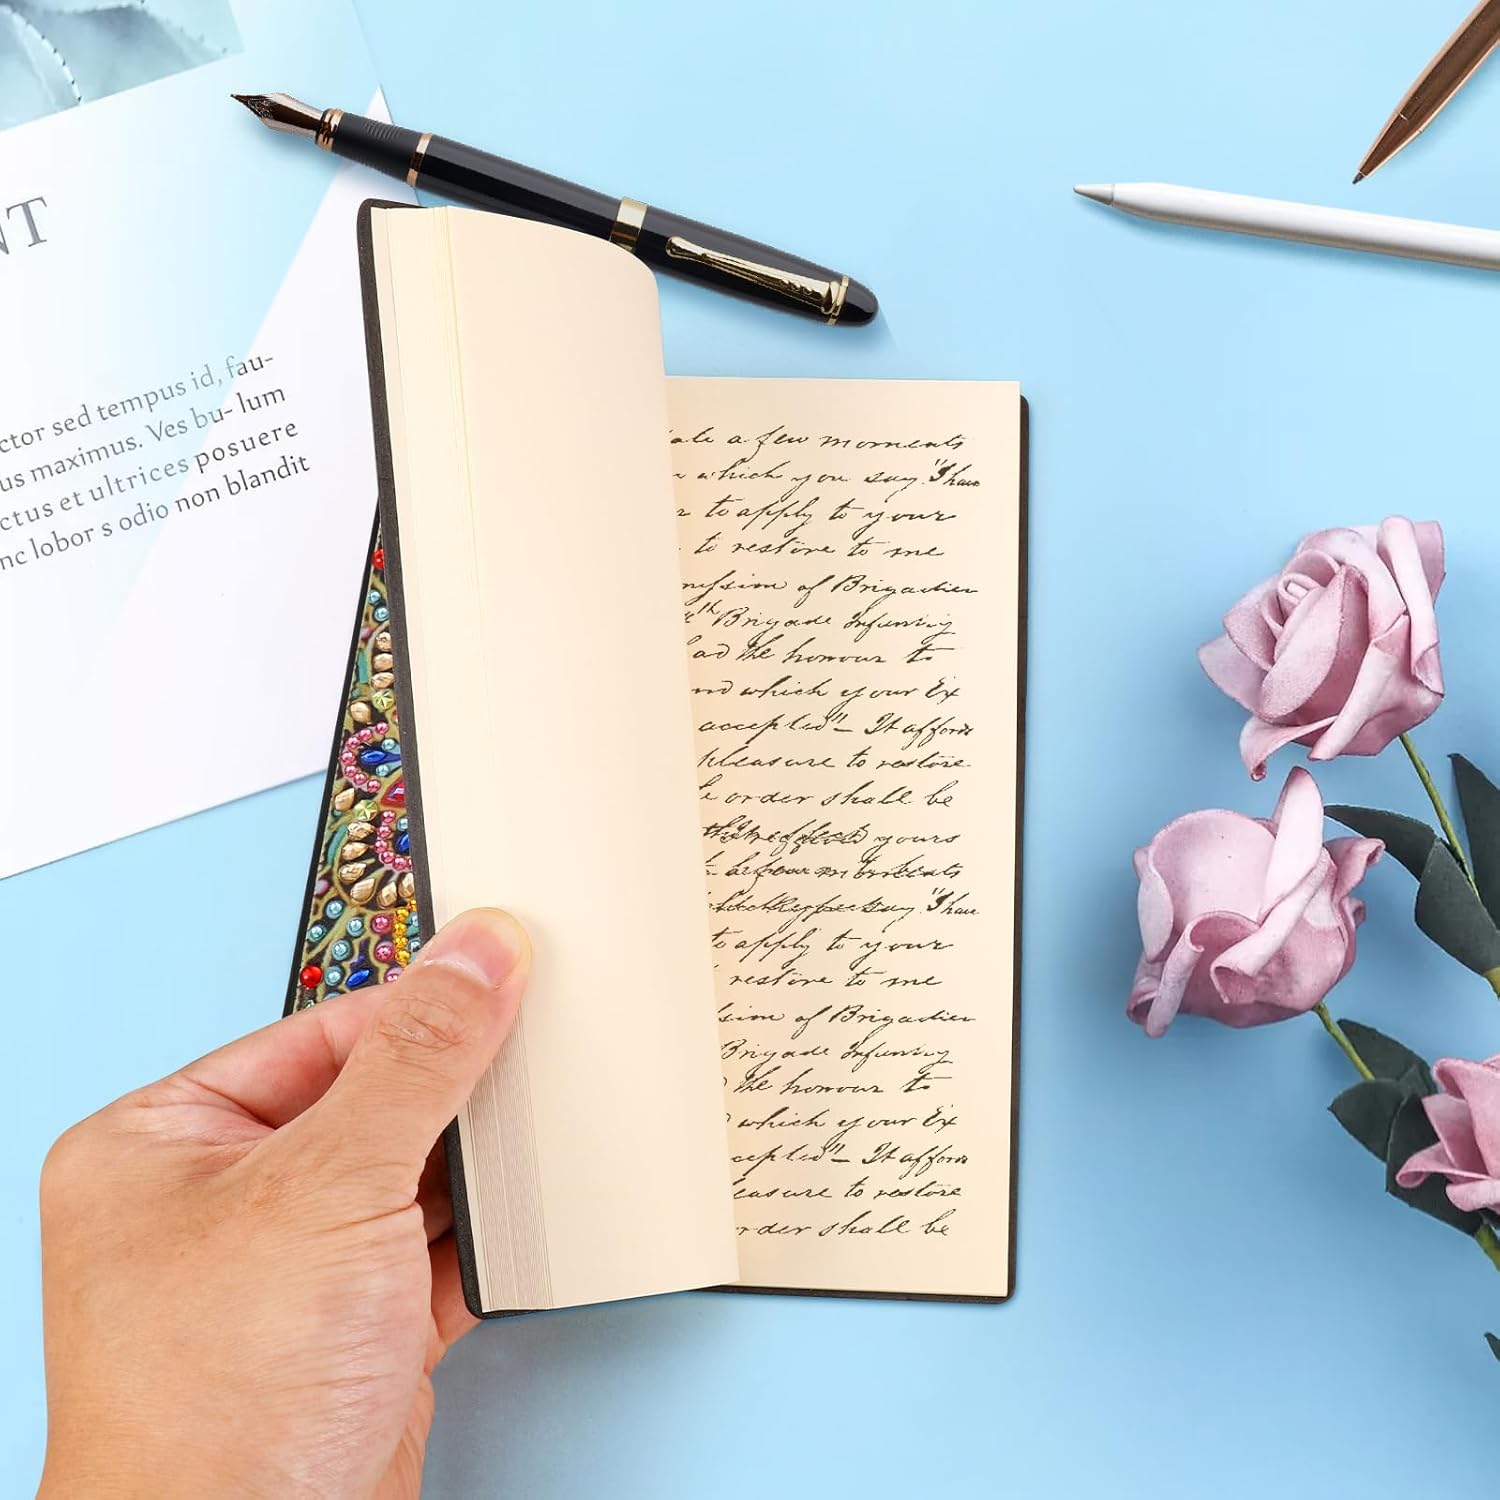 NT
ctor sed tempus id, fau-
us maximus. Ves bu- lum
ctus et ultrices posuere
nc lobor s odio non blandit
a few moments
which you say "I have
to apply to your
to restore to me
of Brigadier
th Brigade Infantry
ad the honour to
which your Ex
accepted" — It affords
pleasure to restore
order shall be
yours
say "I have
to apply to your
restore to me
of Brigadier
Brigade Infantry
the honour to
which your Ex
cepted" — It affords
easure to restore
rder shall be